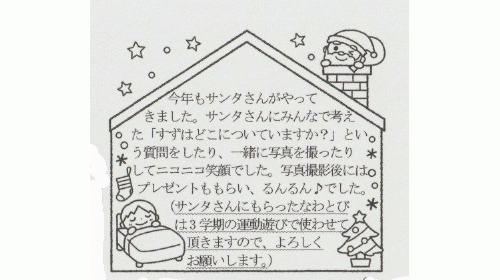 今年もサンタさんがやって
きました。サンタさんにみんなで考え
た「すずはどこについていますか？」とい
う質問をしたり、一緒に写真を撮ったり
してニコニコ笑顔でした。写真撮影後には
プレゼントももらい、るんるん♪でした。
(サンタさんにもらったなわとび
は3学期の運動遊びで使わせて
頂きますので、よろしく
お願いします。)